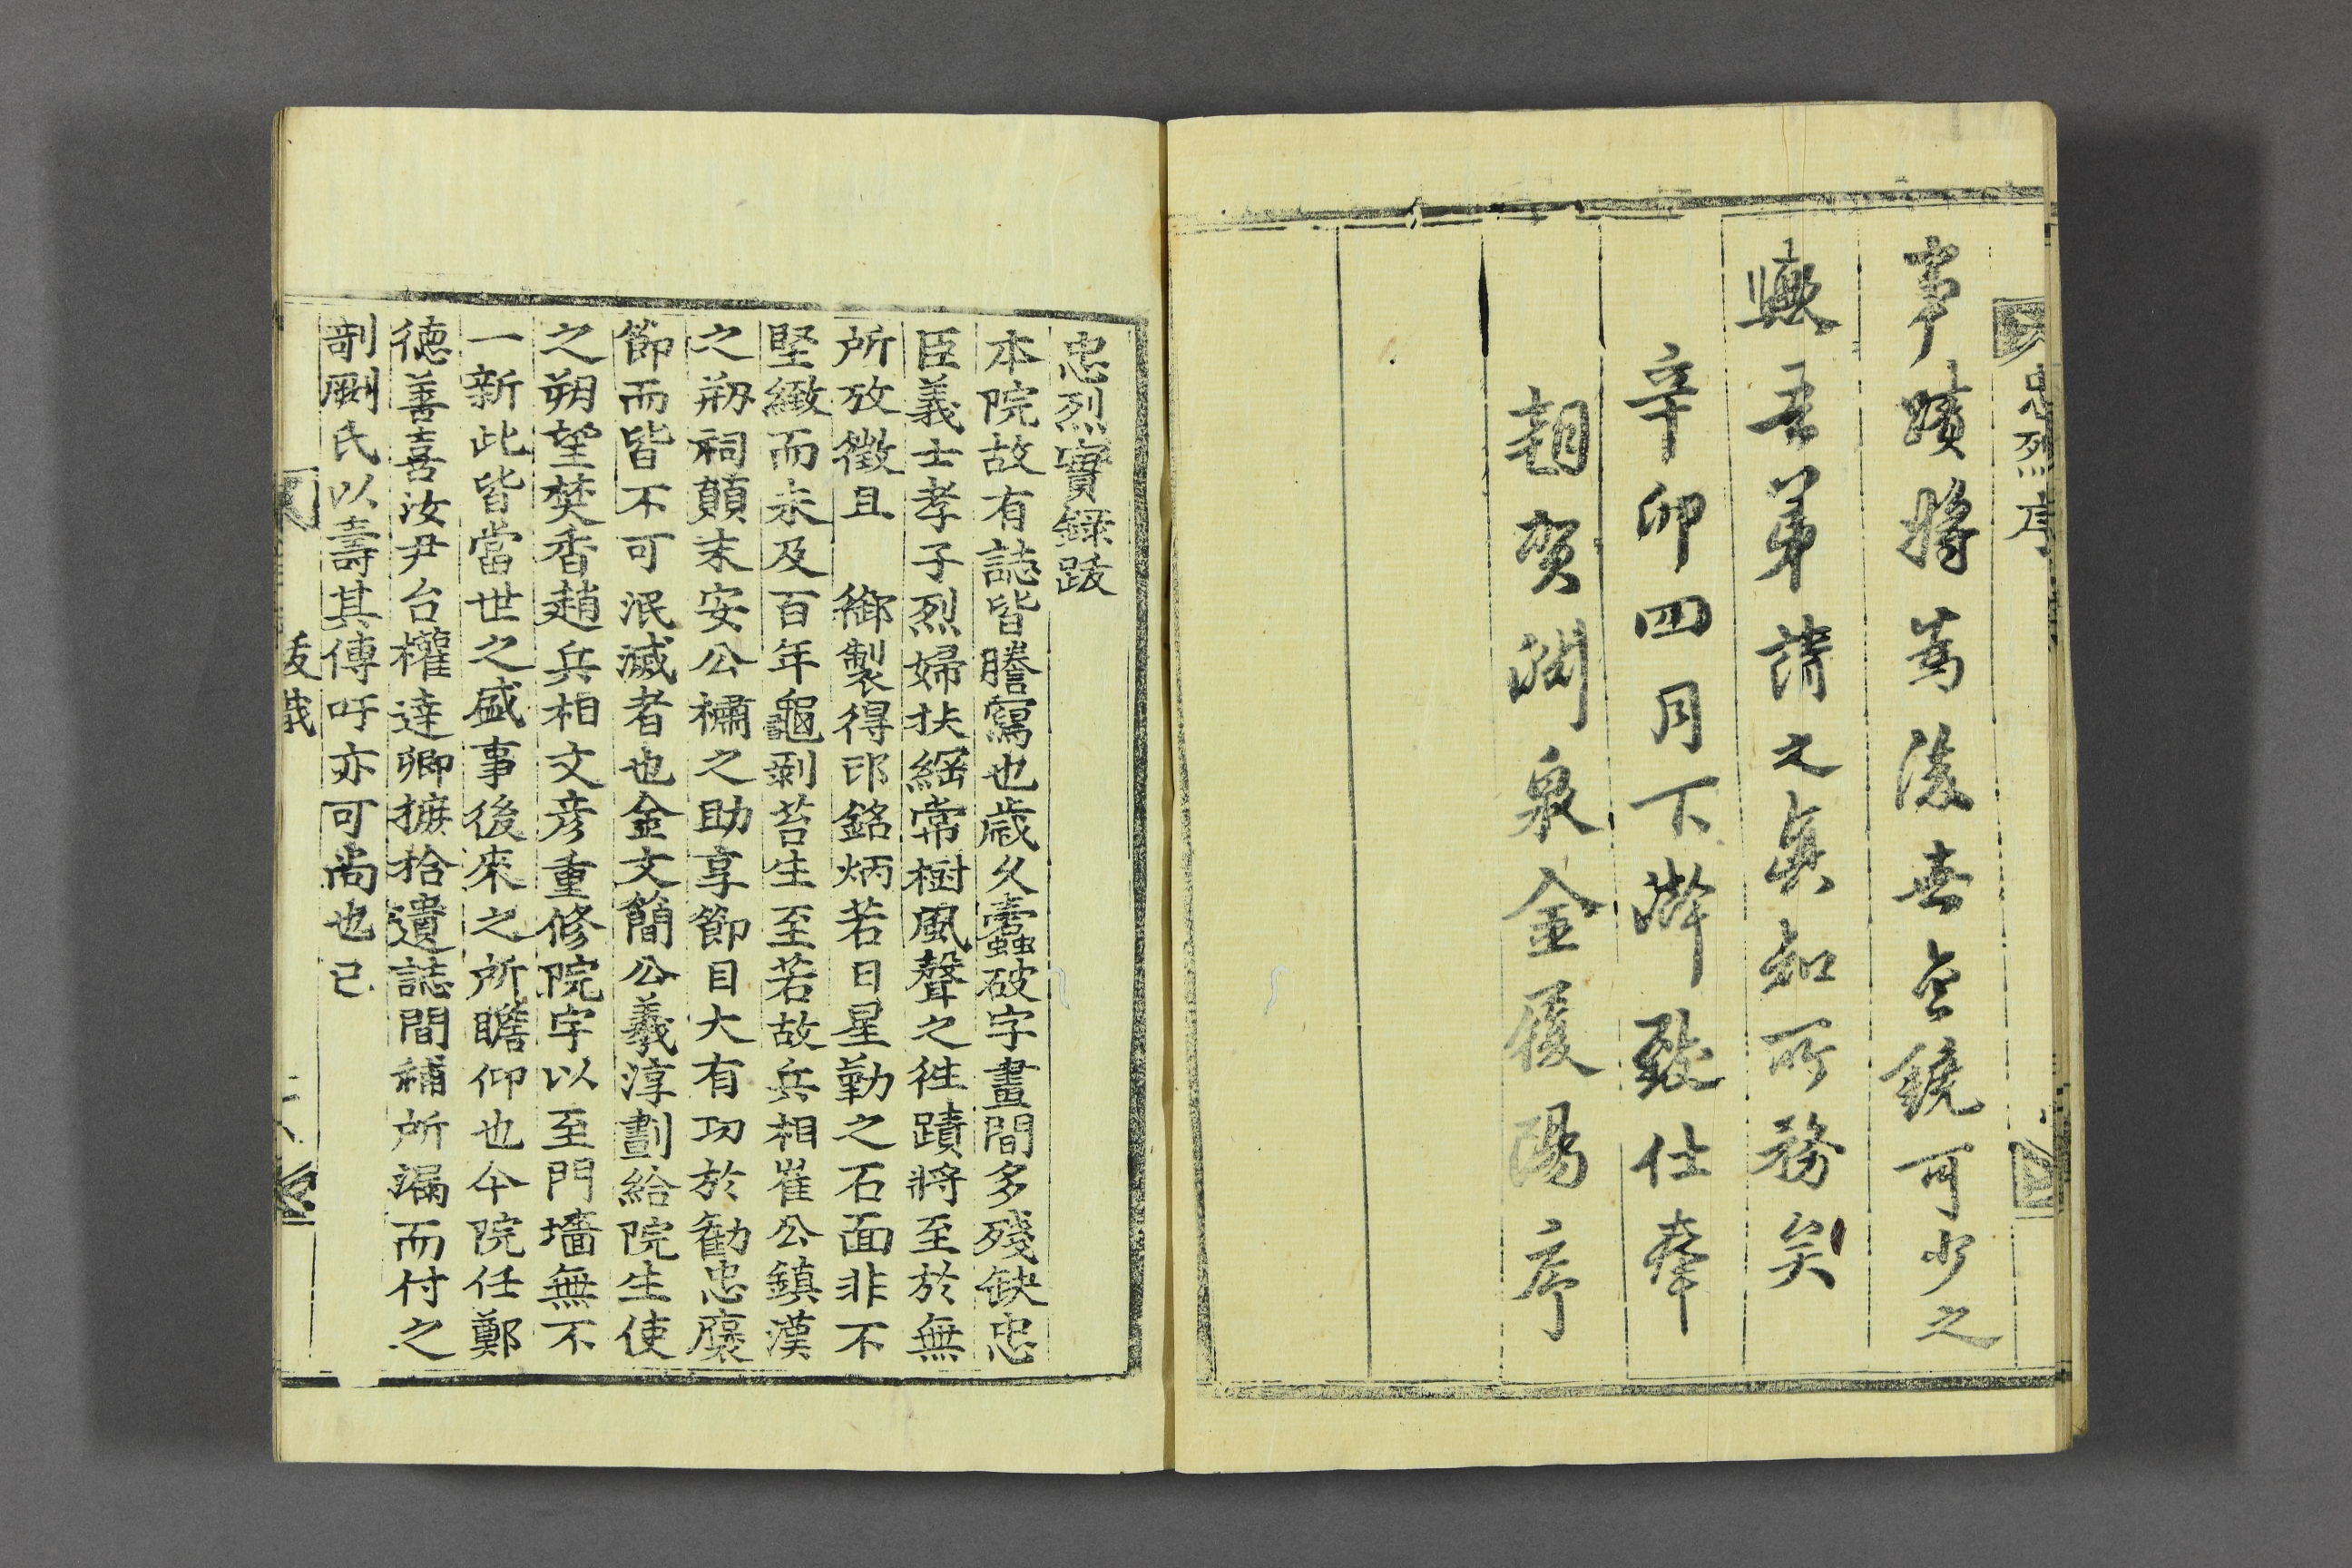 忠烈序
事蹟將為後世金鏡可少之
無吾弟請之眞知所務矣
辛卯四月下澣致仕奉
朝賀淵泉金履陽序
忠烈實錄跋
本院故有誌皆謄寫也歲久蠹破字畫間多殘缺忠
臣義士孝子烈婦扶綱常樹風聲之徃蹟將至於無
所攷徵且 御製得印銘炳若日星勒之石面非不
堅緻而未及百年龜剥苔生至若故兵相崔公鎮漢
之刱祠顛末安公橚之助享節目大有功於勸忠褒
節而皆不可泯滅者也金文簡公羲淳劃給院生使
之朔望焚香趙兵相文彦重修院宇以至門墻無不
一新此皆當世之盛事後來之所瞻仰也今院任鄭
德善喜汝尹台權達卿摭拾遺誌間補所漏而付之
剞劂氏以壽其傳吁亦可尚也已
跋